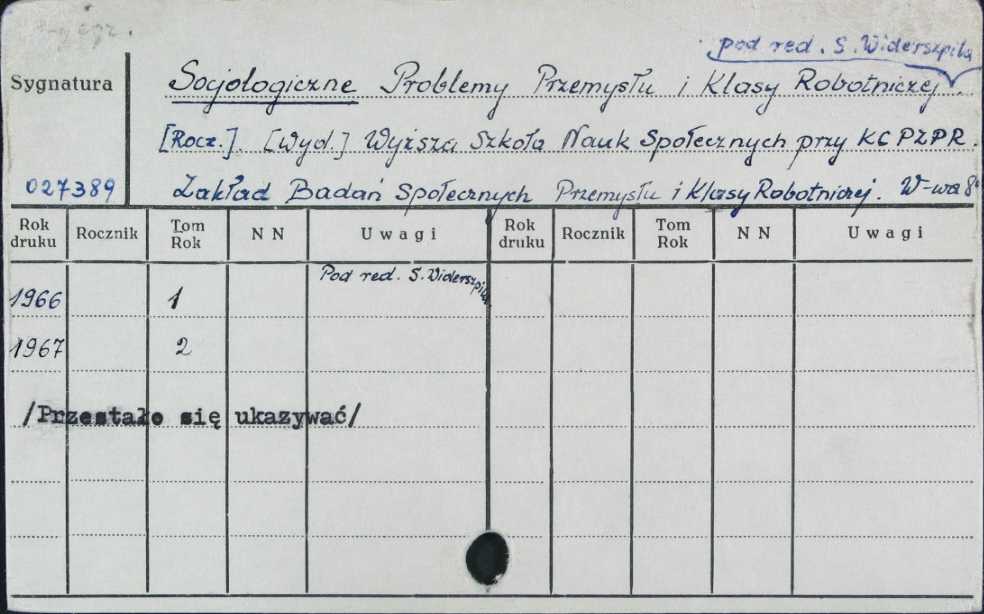 egz.
pod red. S. Widerszpila
Sygnatura
Socjologiczne Problemy Przemysłu i Klasy Robotniczej.
[Rocz.]. [Wyd.] Wyższa Szkoła Nauk Społecznych przy KC PZPR.
027389 Zakład Badań Społecznych Przemysłu i Klasy Robotniczej. W-wa 8°
Rok druku Rocznik Tom Rok N N Uwagi Rok druku Rocznik Tom Rok N N Uwagi
Pod red. S. Widerszpila
1966 1
1967 2
/Przestało się ukazywać/